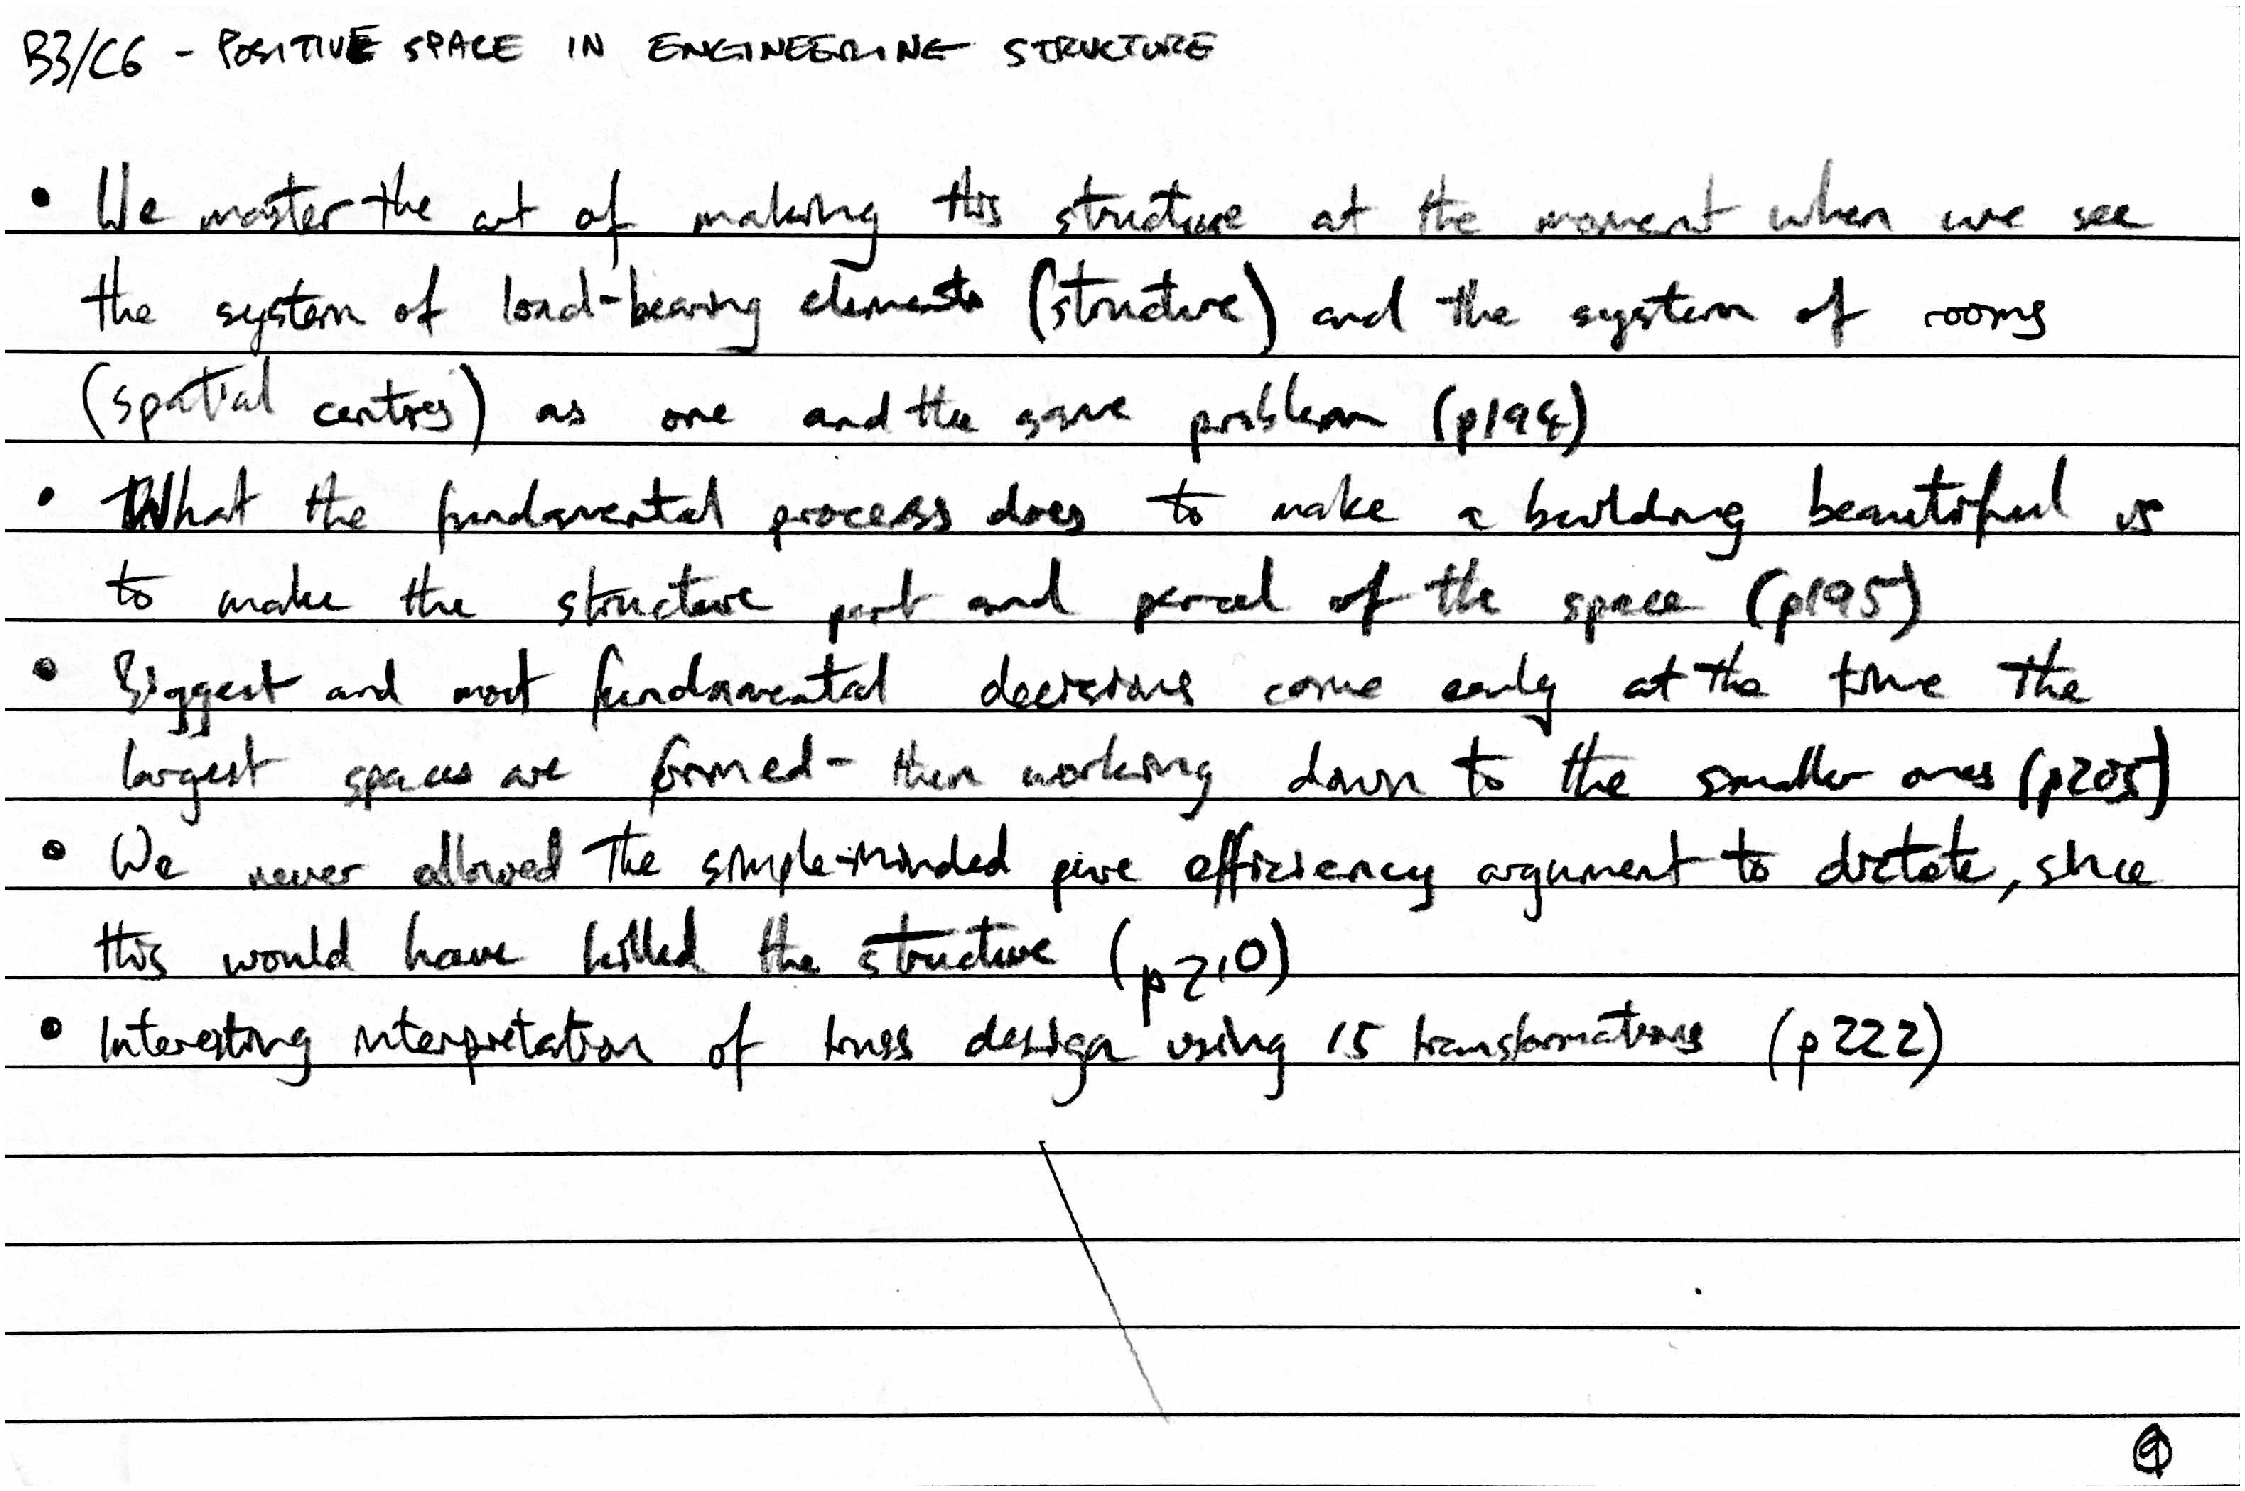 B3/C6 - POSITIVE SPACE IN ENGINEERING STRUCTURE
• We master the art of making this structure at the moment when we see
the system of load-bearing elements (structure) and the system of rooms
(spatial centres) as one and the same problem (p194)
• What the fundamental process does to make a building beautiful is
to make the structure part and parcel of the space (p195)
• Biggest and most fundamental decisions come early at the time the
largest spaces are formed - then working down to the smaller ones (p205)
• We never allowed the simple-minded pure efficiency argument to dictate, since
this would have killed the structure (p210)
• Interesting interpretation of truss design using 15 transformations (p222)